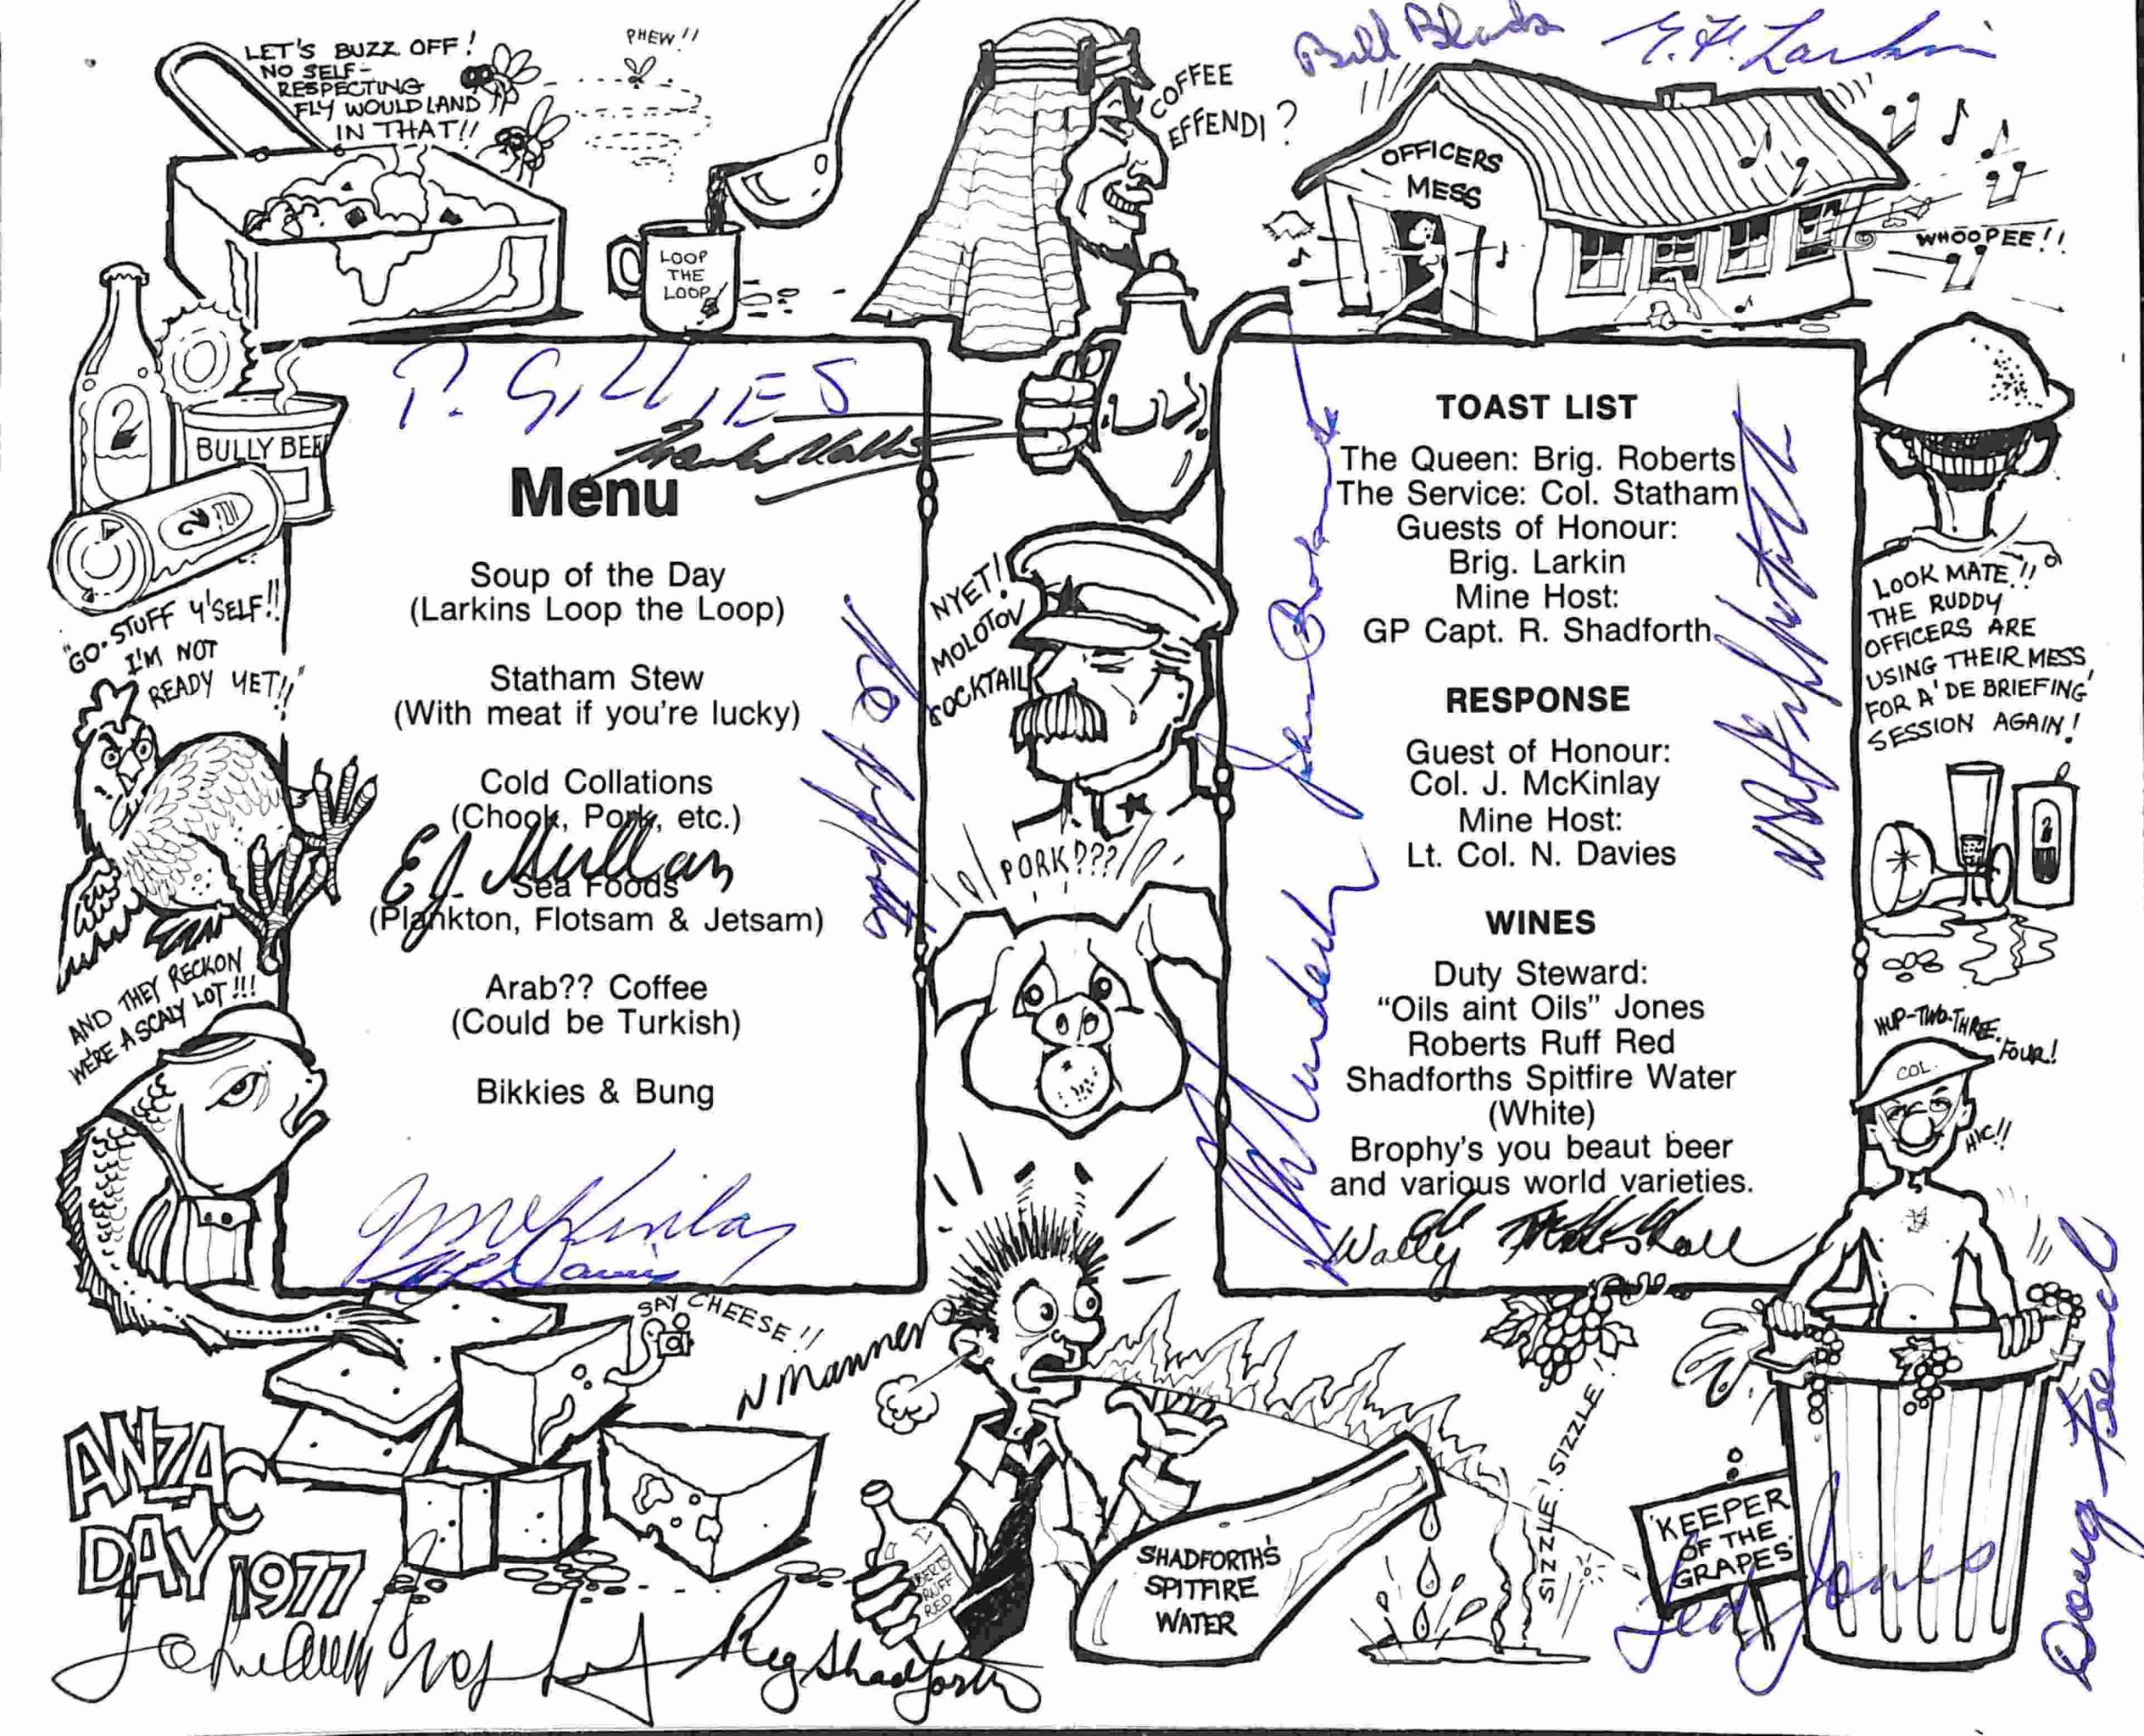 LET'S BUZZ OFF!
NO SELF-
RESPECTING
FLY WOULD LAND
IN THAT!!
PHEW!!
LOOP
THE
LOOP
COFFEE
EFFENDI?
Bill
Larkin
OFFICERS
MESS
WHOOPEE!!
2
BULLY BEEF
2
"GO. STUFF Y'SELF!!
I'M NOT
READY YET!!"
AND THEY RECKON
WE'RE A SCALY LOT!!!
P. GILLIES
Menu
Soup of the Day
(Larkins Loop the Loop)
Statham Stew
(With meat if you're lucky)
Cold Collations
(Chook, Pork, etc.)
EJ Mullan
Sea Foods
(Plankton, Flotsam & Jetsam)
Arab?? Coffee
(Could be Turkish)
Bikkies & Bung
McKinlay
Davis
NYET!!
MOLOTOV
COCKTAIL
PORK???
John
TOAST LIST
The Queen: Brig. Roberts
The Service: Col. Statham
Guests of Honour:
Brig. Larkin
Mine Host:
GP Capt. R. Shadforth
RESPONSE
Guest of Honour:
Col. J. McKinlay
Mine Host:
Lt. Col. N. Davies
WINES
Duty Steward:
"Oils aint Oils" Jones
Roberts Ruff Red
Shadforths Spitfire Water
(White)
Brophy's you beaut beer
and various world varieties.
Wally
LOOK MATE!!
THE RUDDY
OFFICERS ARE
USING THEIR MESS
FOR A 'DE BRIEFING'
SESSION AGAIN!
2
HUP-TWO-THREE.
FOUR!
COL.
HIC!!
SAY CHEESE!!
N Manner
ANZAC
DAY 1977
ROBERTS
RUFF
RED
SHADFORTH'S
SPITFIRE
WATER
SIZZLE! SIZZLE!
'KEEPER
OF THE
GRAPES'
Ted Jones
Doug
Reg Shadforth